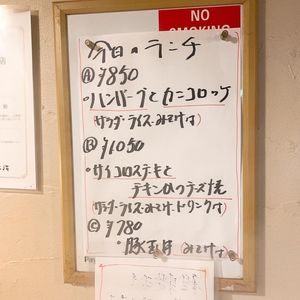 NO
SMOKING
今日のランチ
Ⓐ ¥850
・ハンバーグとカニコロッケ
(サラダ・ライス・みそ汁付)
Ⓑ ¥1050
・サイコロステーキと
チキンのチーズ焼
(サラダ・ライス・みそ汁・ドリンク付)
Ⓒ ¥780
・豚丼 みそ汁付